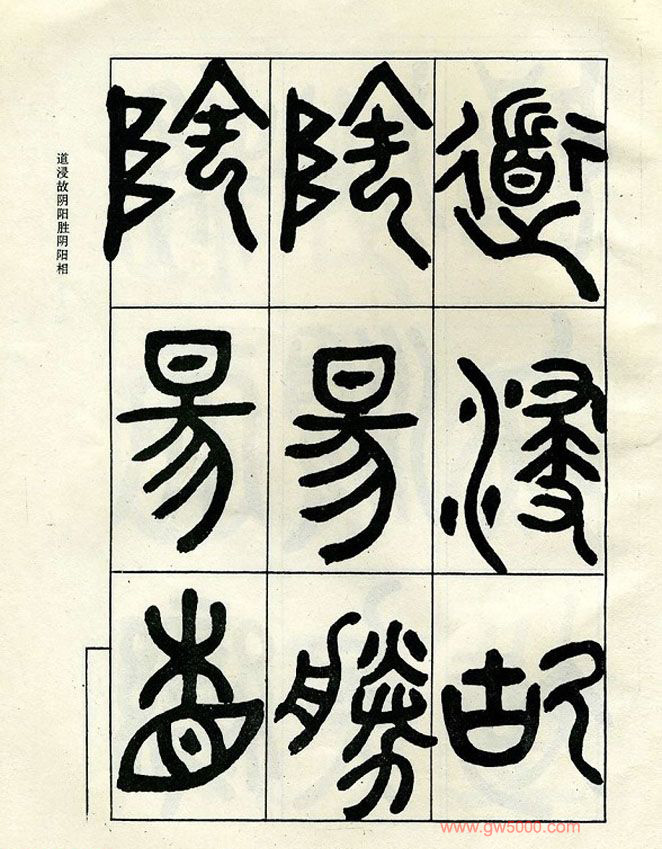 道浸故
陰昜勝
陰昜相
道浸故阴阳胜阴阳相
www.gw5000.com